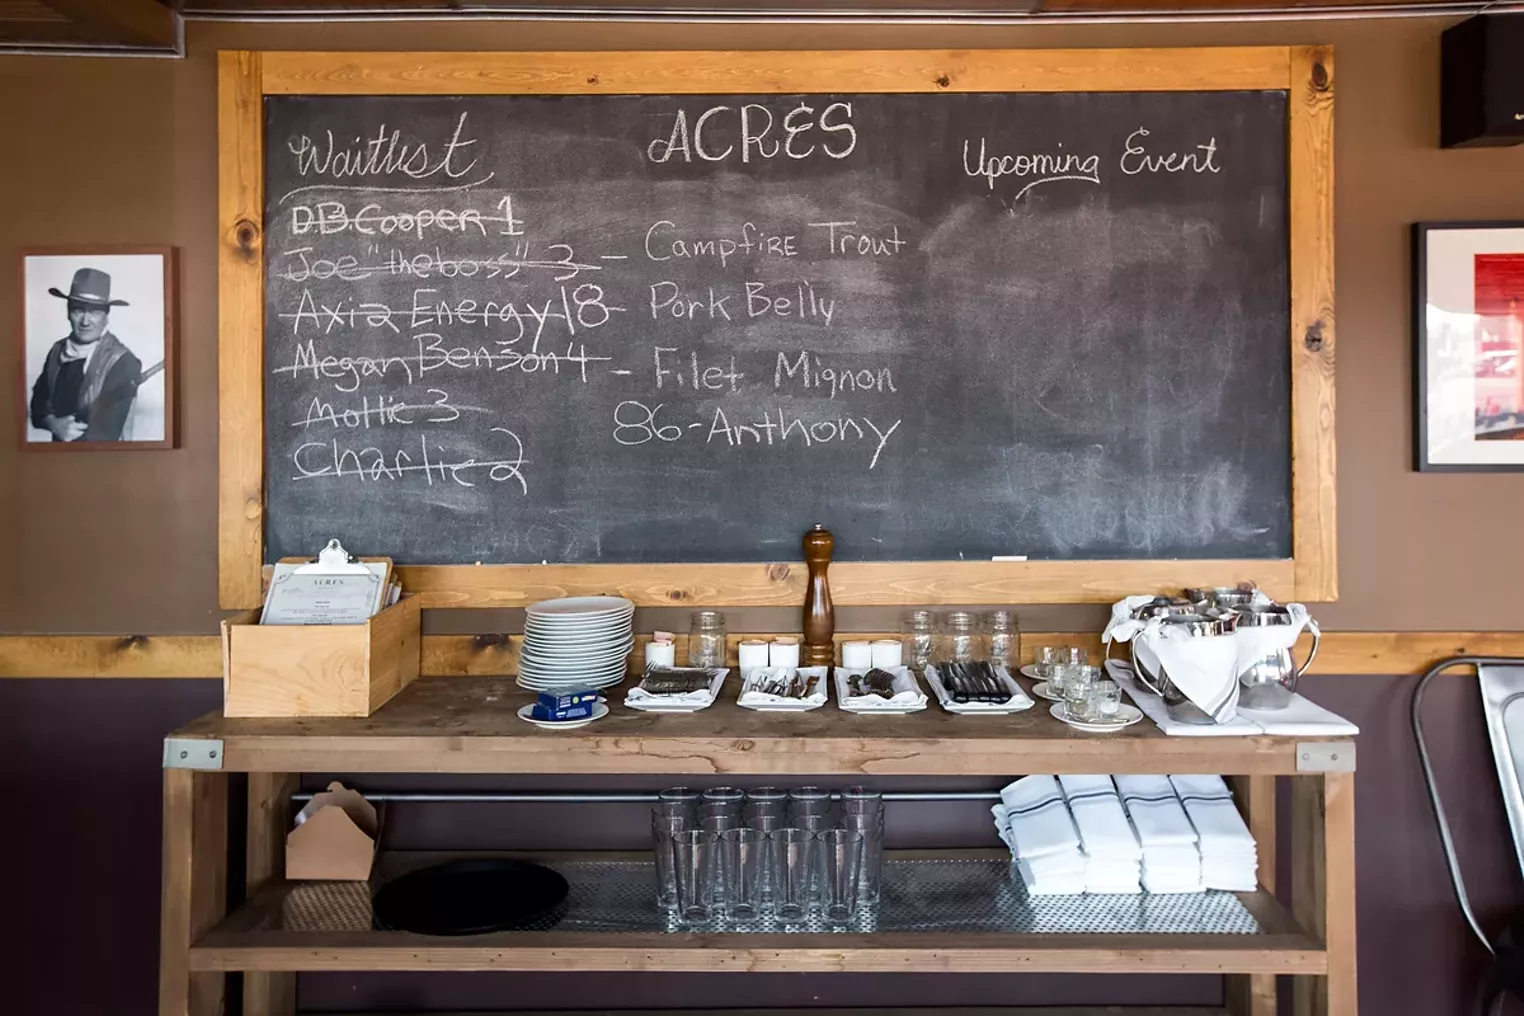 ACRES
Waitlist
D.B. Cooper 1
Joe "the boss" 3 -
Axia Energy 18
Megan Benson 4 -
Mollie 3
Charlie 2
Campfire Trout
Pork Belly
Filet Mignon
86-Anthony
Upcoming Event
ACRES